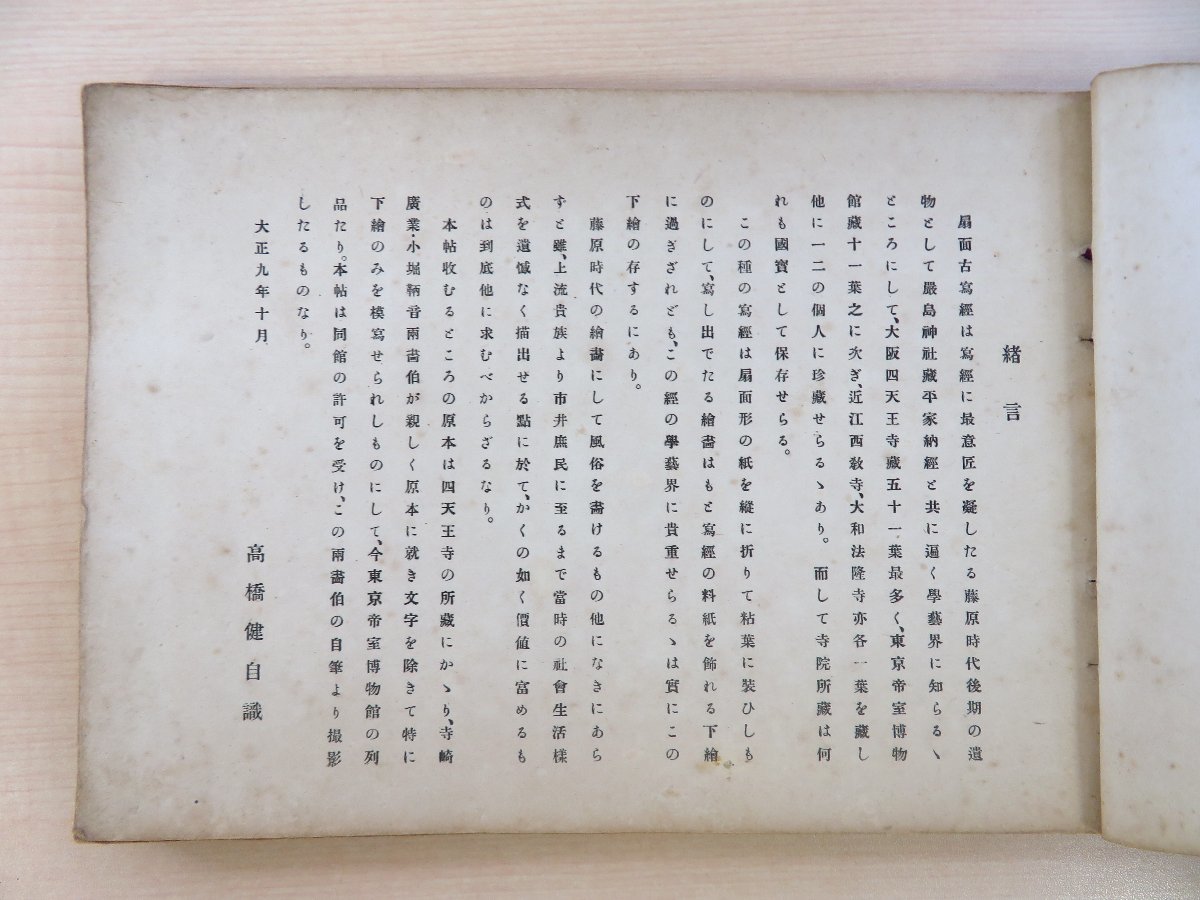 緒言
扇面古寫經は寫經に最意匠を凝したる藤原時代後期の遺
物として嚴島神社藏平家納經と共に遍く學藝界に知らるゝ
ところにして、大阪四天王寺藏五十一葉最多く、東京帝室博物
館藏十一葉之に次ぎ、近江西敎寺、大和法隆寺亦各一葉を藏し
他に一二の個人に珍藏せらるゝあり。而して寺院所藏は何
れも國寶として保存せらる。
この種の寫經は扇面形の紙を縱に折りて粘葉に裝ひしも
のにして、寫し出でたる繪畵はもと寫經の料紙を飾れる下繪
に過ぎざれども、この經の學藝界に貴重せらるゝは實にこの
下繪の存するにあり。
藤原時代の繪畵にして風俗を畵けるもの他になきにあら
ずと雖、上流貴族より市井庶民に至るまで當時の社會生活樣
式を遺憾なく描出せる點に於て、かくの如く價値に富めるも
のは到底他に求むべからざるなり。
本帖收むるところの原本は四天王寺の所藏にかゝり、寺崎
廣業・小堀鞆音兩畵伯が親しく原本に就き文字を除きて特に
下繪のみを模寫せられしものにして、今東京帝室博物館の列
品たり。本帖は同館の許可を受け、この兩畵伯の自筆より撮影
したるものなり。
大正九年十月
高橋健自識